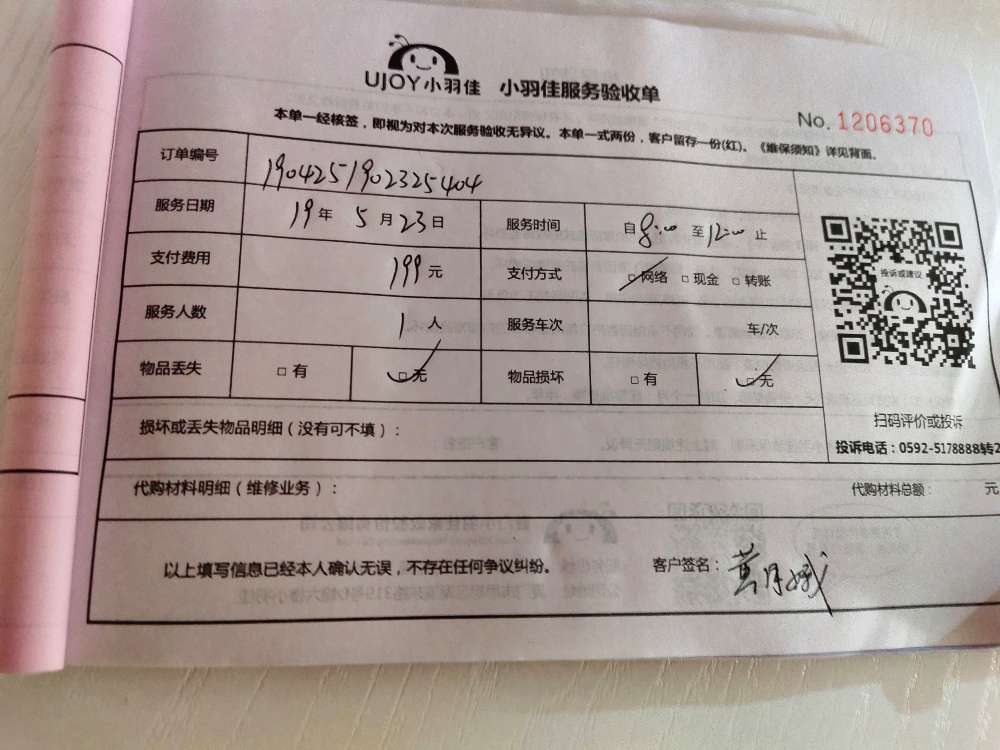 UJOY小羽佳 小羽佳服务验收单
No. 1206370
本单一经核签，即视为对本次服务验收无异议。本单一式两份，客户留存一份(红)。《维保须知》详见背面。
订单编号 1904251902325404
服务日期 19年 5月23日 服务时间 自8:00 至12:00 止
支付费用 199元 支付方式 □网络 □现金 □转账
服务人数 1人 服务车次 车/次
物品丢失 □有 □无 物品损坏 □有 □无
投诉或建议
扫码评价或投诉
投诉电话：0592-5178888转2
损坏或丢失物品明细（没有可不填）：
代购材料明细（维修业务）： 代购材料总额： 元
以上填写信息已经本人确认无误，不存在任何争议纠纷。 客户签名：黄月娥